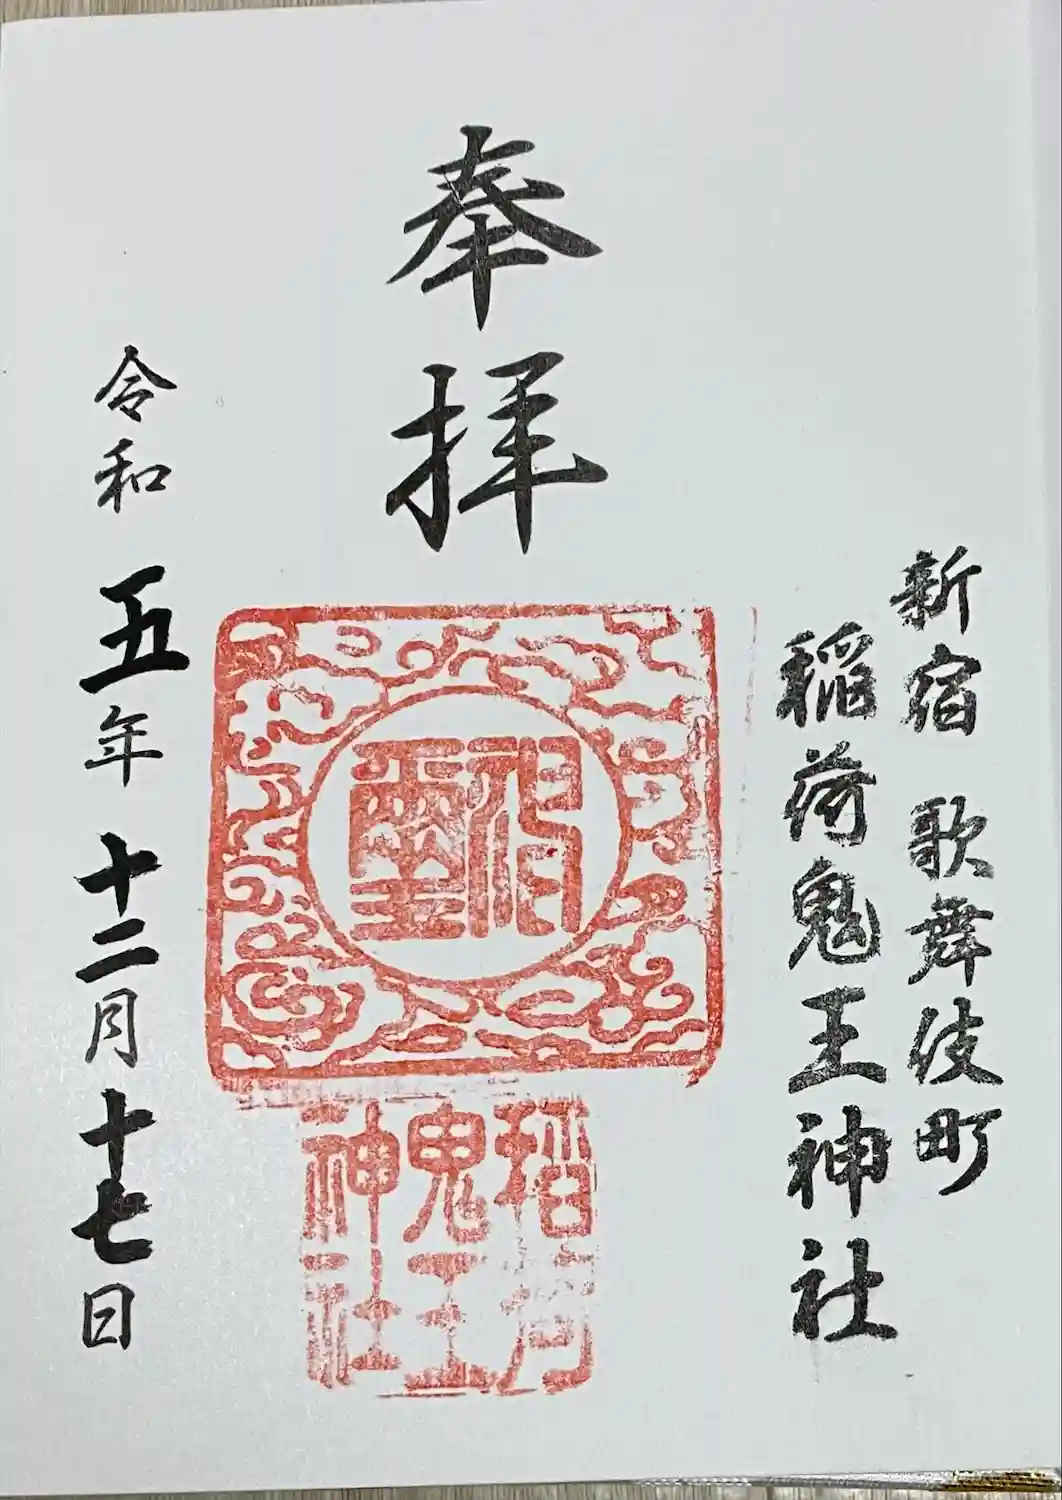 新宿 歌舞伎町
稲荷鬼王神社
奉拝
神璽
稲荷
鬼王
神社
令和五年十二月十七日